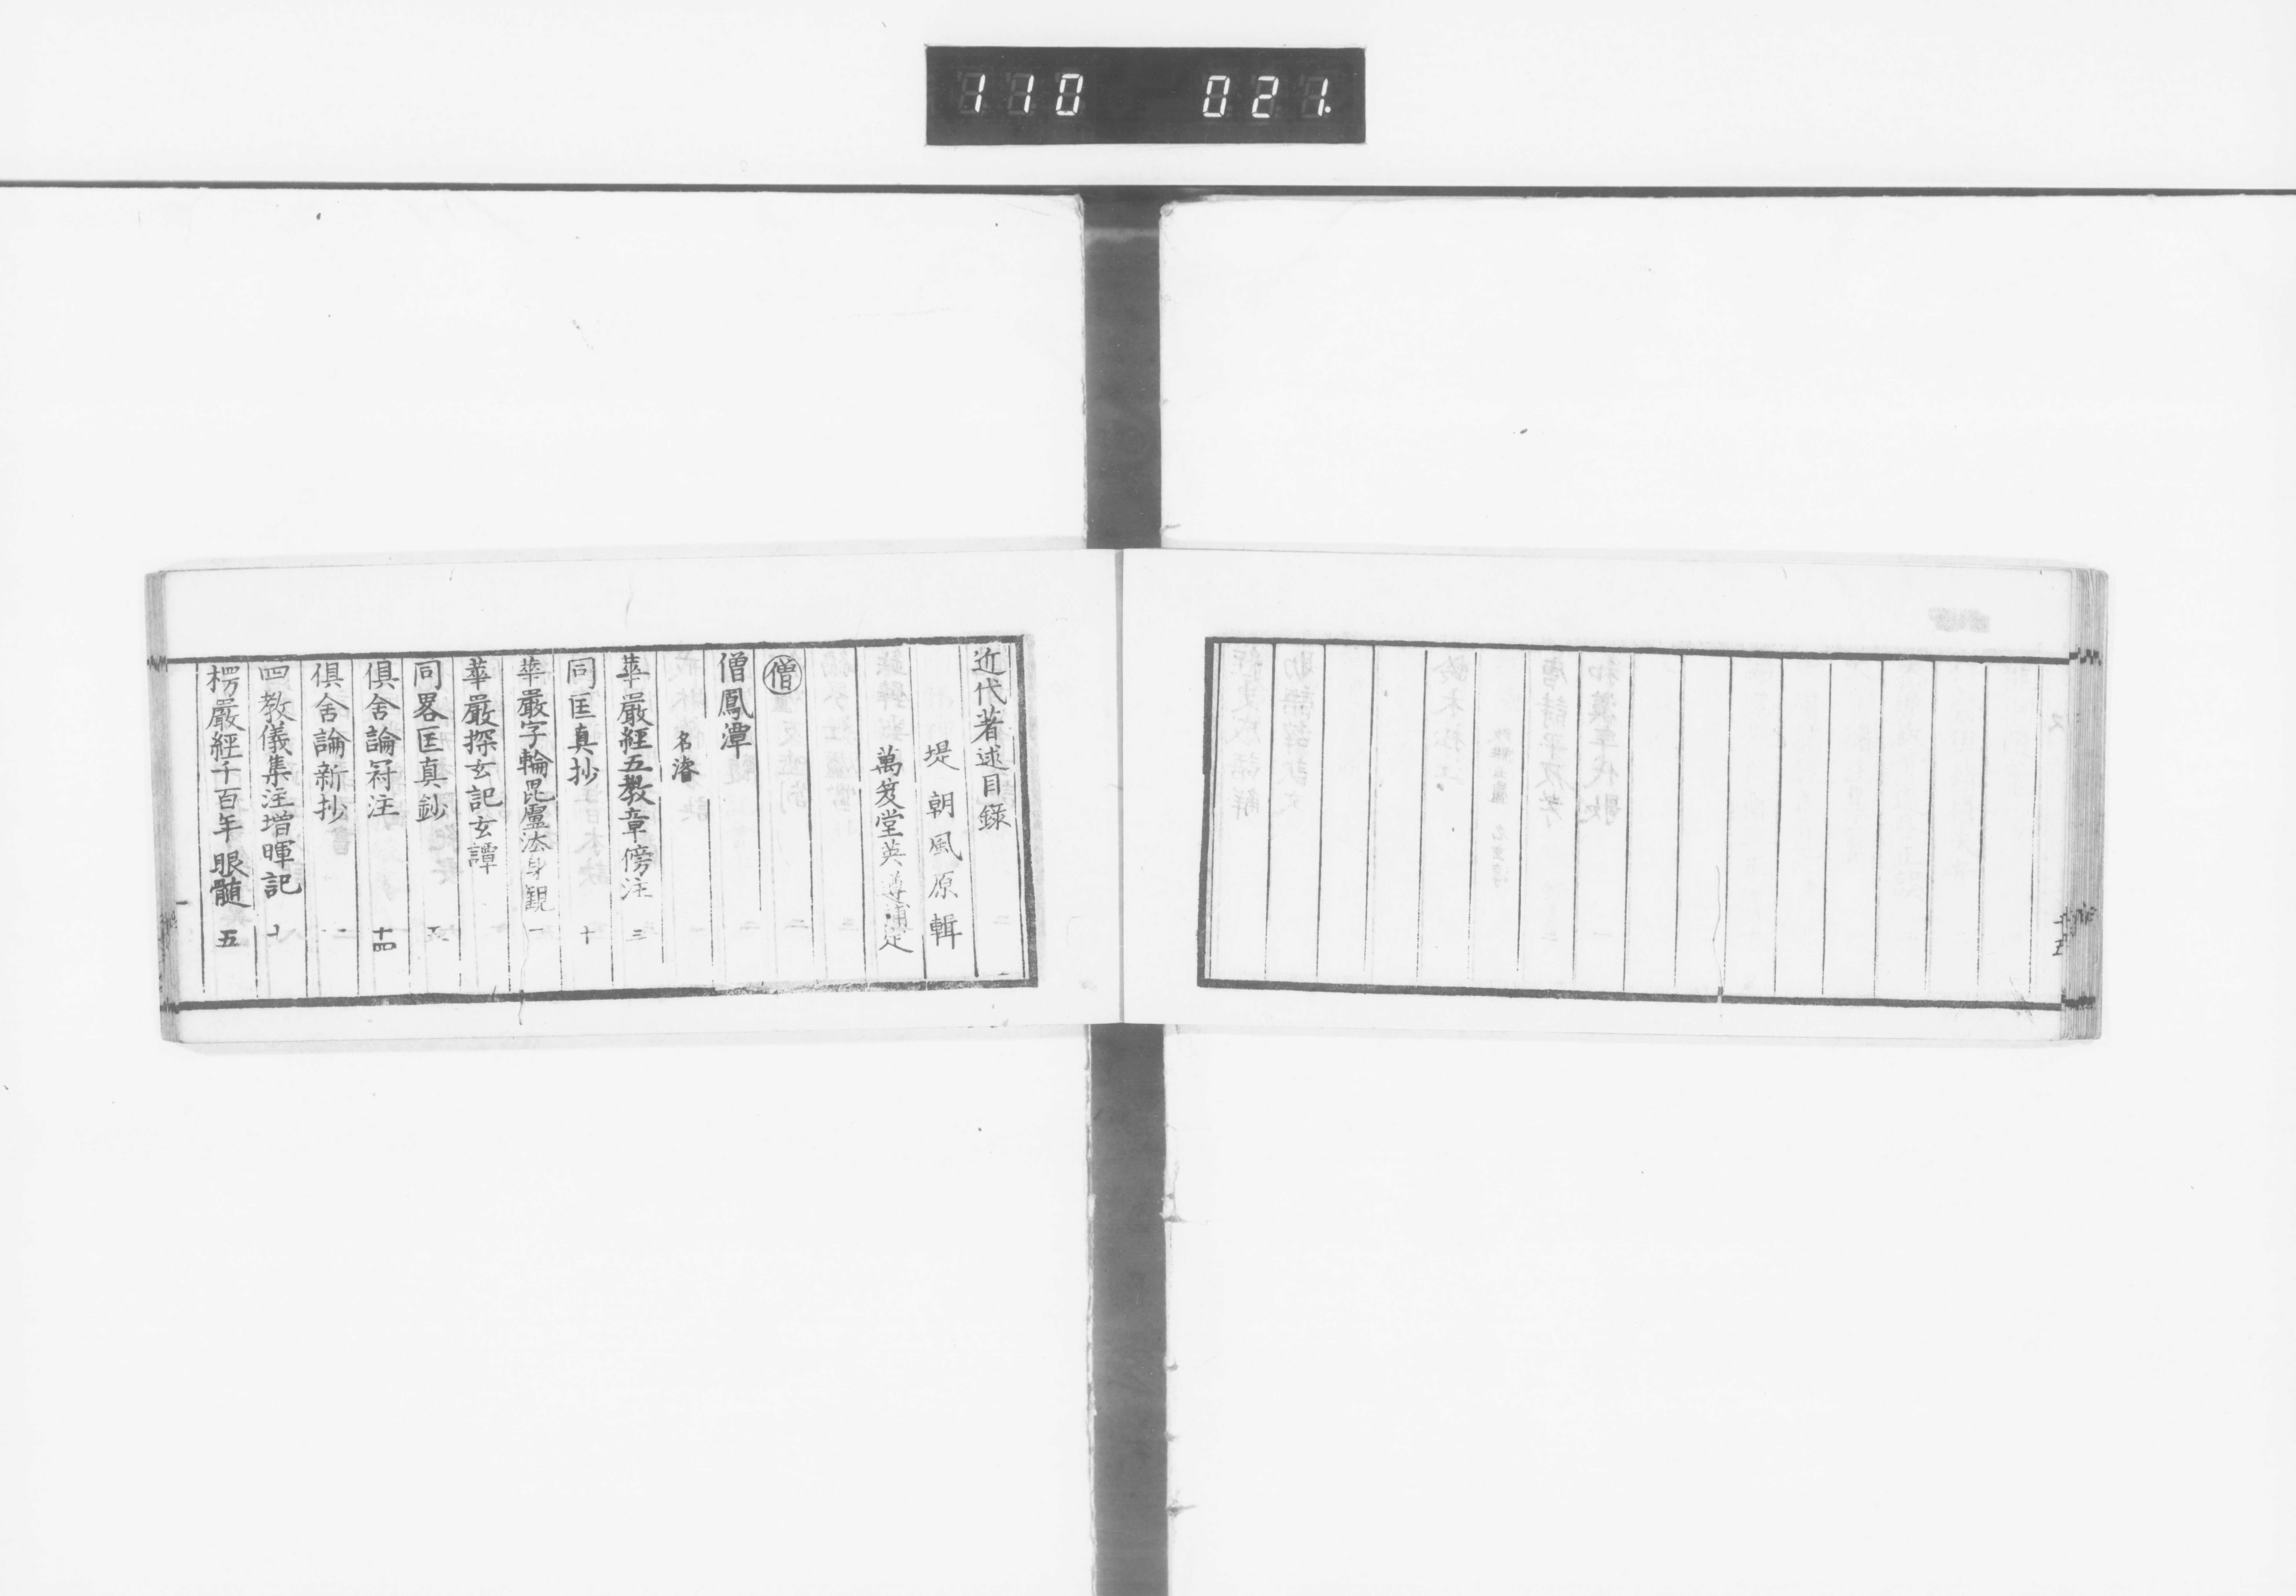 110 021
近代著述目錄
堤朝風原輯
萬笈堂英遵補定
僧
僧鳳潭
名濬
華嚴經五教章傍注 三
同匡真抄 十
華嚴字輪毘盧法身観 一
華嚴探玄記玄譚
同畧匡真鈔
俱舍論冠注 十四
俱舍論新抄
四教儀集注增暉記 十
楞嚴經千百年眼髄 五